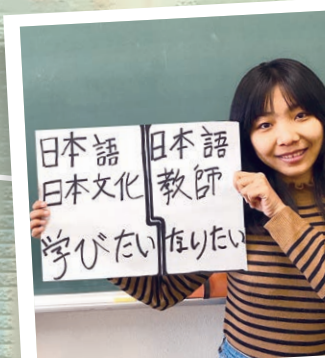 日本語
日本文化
学びたい
日本語
教師
なりたい